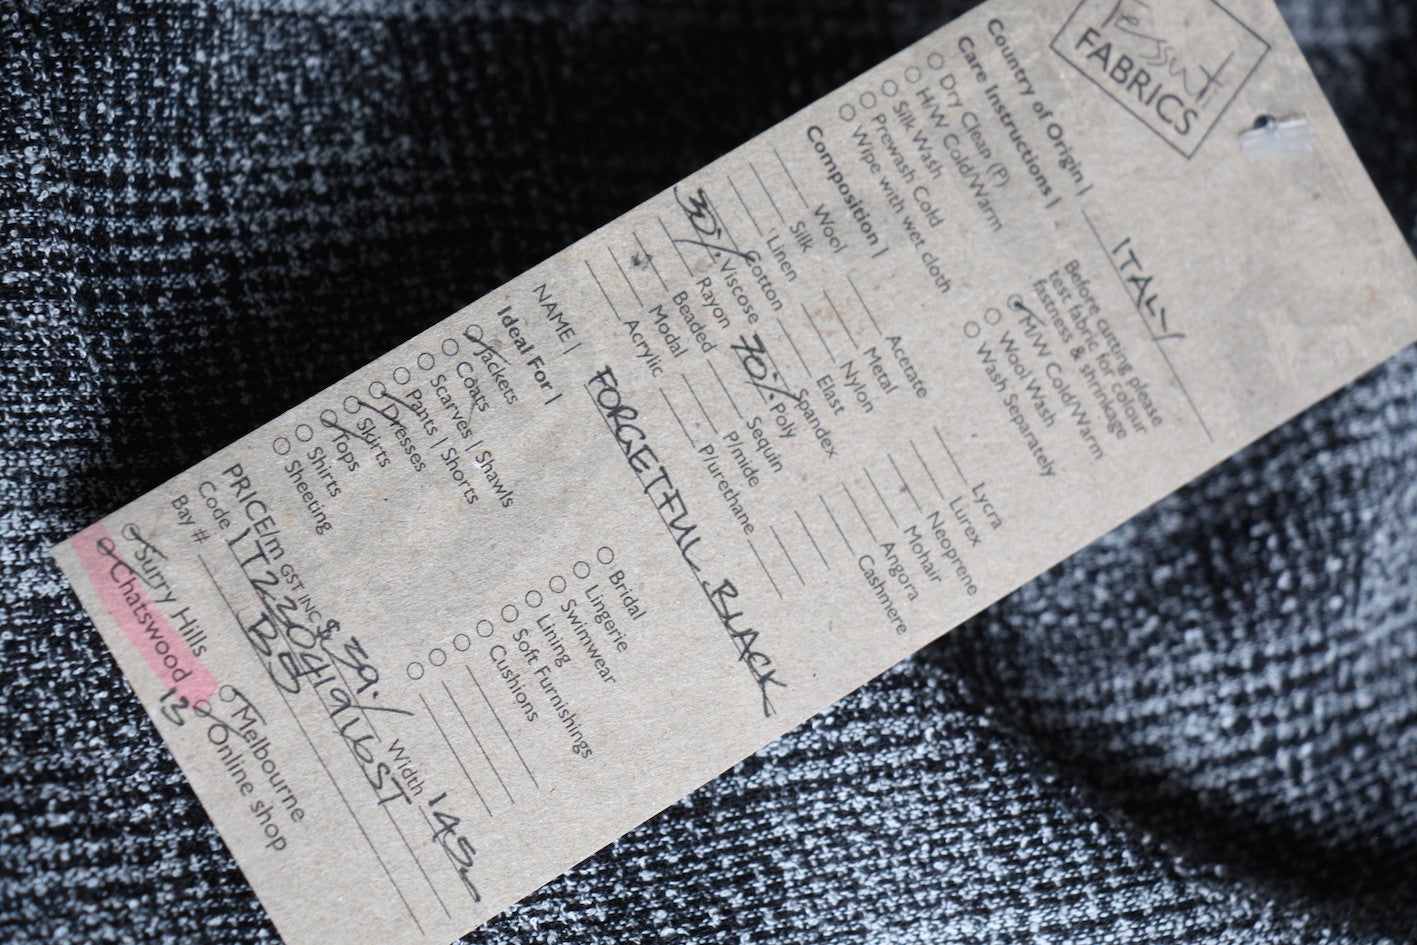 Tessuti
FABRICS
Country of Origin | ITALY
Care Instructions |
Before cutting please
test fabric for colour
fastness & shrinkage
Dry Clean (P)
H/W Cold/Warm
Silk Wash
Prewash Cold
Wipe with wet cloth
M/W Cold/Warm
Wool Wash
Wash Separately
Composition |
Wool
Silk
Linen
Cotton
30% Viscose
Rayon
Beaded
Modal
Acrylic
Acetate
Metal
Nylon
Elast
Spandex
70% Poly
Sequin
P/mide
P/urethane
Lycra
Lurex
Neoprene
Mohair
Angora
Cashmere
NAME | FORGETFUL BLACK
Ideal For |
Jackets
Coats
Scarves | Shawls
Pants | Shorts
Dresses
Skirts
Tops
Shirts
Sheeting
Bridal
Lingerie
Swimwear
Lining
Soft Furnishings
Cushions
PRICE/m GST INC $ 39.- Width 145
Code
Bay #
Surry Hills
Chatswood 13
Melbourne
Online shop